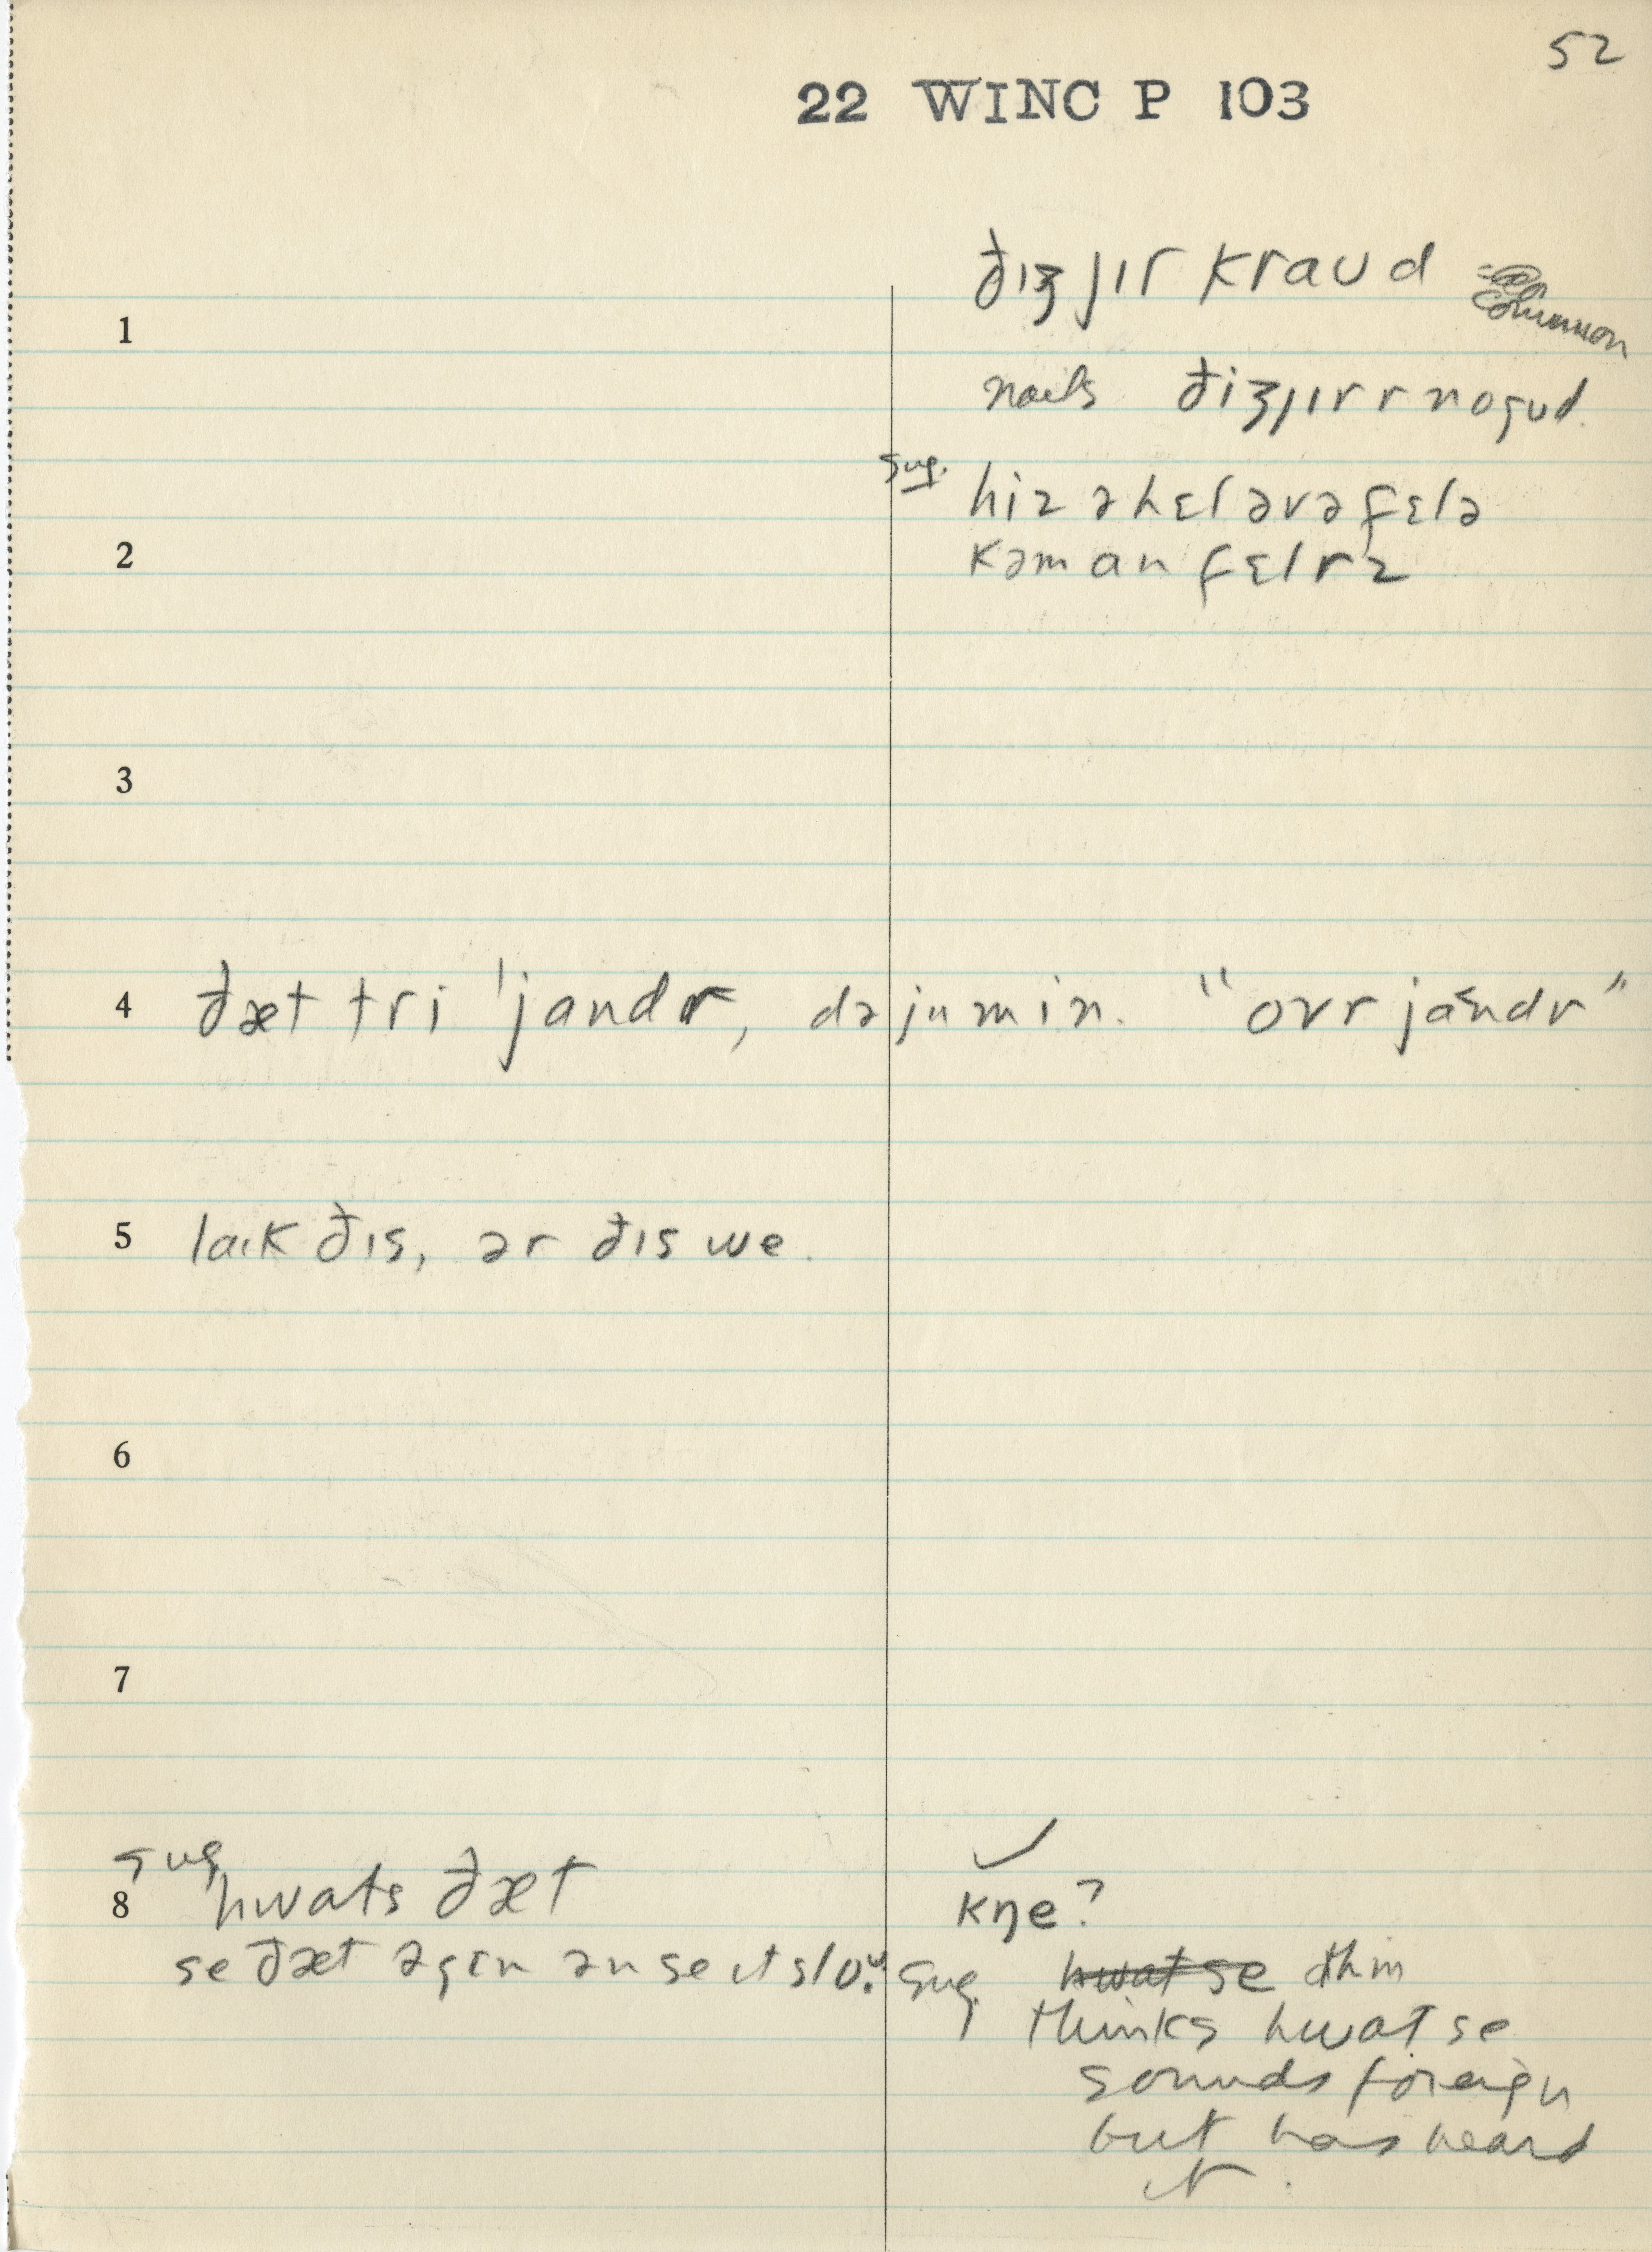 52
22 WINC P 103
ðɪʒ jɪr kraud common
1
nails ðiʒjɪr r no gud.
sug. hiz ə hɛl əv ə fɛlə
2 kəmən fɛlrz
3
4 ðæt tri 'jandr, də ju min. "ovr jándr"
5 laɪk ðɪs, ər ðɪs we.
6
7
sug ✓
8 hwats ðæt kŋe?
se ðæt əgɪn ən se ɪt slo. sug. hwat se
thinks hwat se
sounds foreign
but has heard
it.